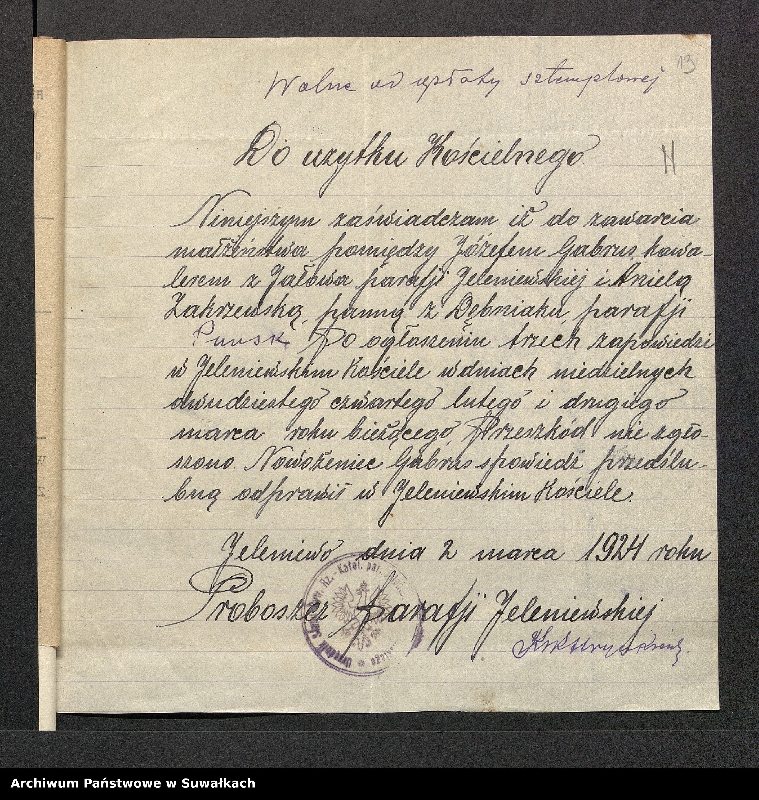 13
Wolne od opłaty sztemplowej
Do użytku Kościelnego
N
Niniejszym zaświadczam iż do zawarcia
małżeństwa pomiędzy Józefem Gabrus kawa-
lerem z Jałowa parafji Jeleniewskiej i Anielą
Zakrzewską, panną z Dębniaku parafji
Puńsk. Po ogłoszeniu trzech zapowiedzi
w Jeleniewskim Kościele w dniach niedzielnych
dwudziestego czwartego lutego i drugiego
marca roku bieżącego. Przeszkód nie zgło-
szono. Nowożeniec Gabrus spowiedź przedślu-
bną odprawił w Jeleniewskim Kościele.
Jeleniewo dnia 2 marca 1924 roku
Proboszcz Parafji Jeleniewskiej
Rz.-Katol. par.
Archiwum Państwowe w Suwałkach